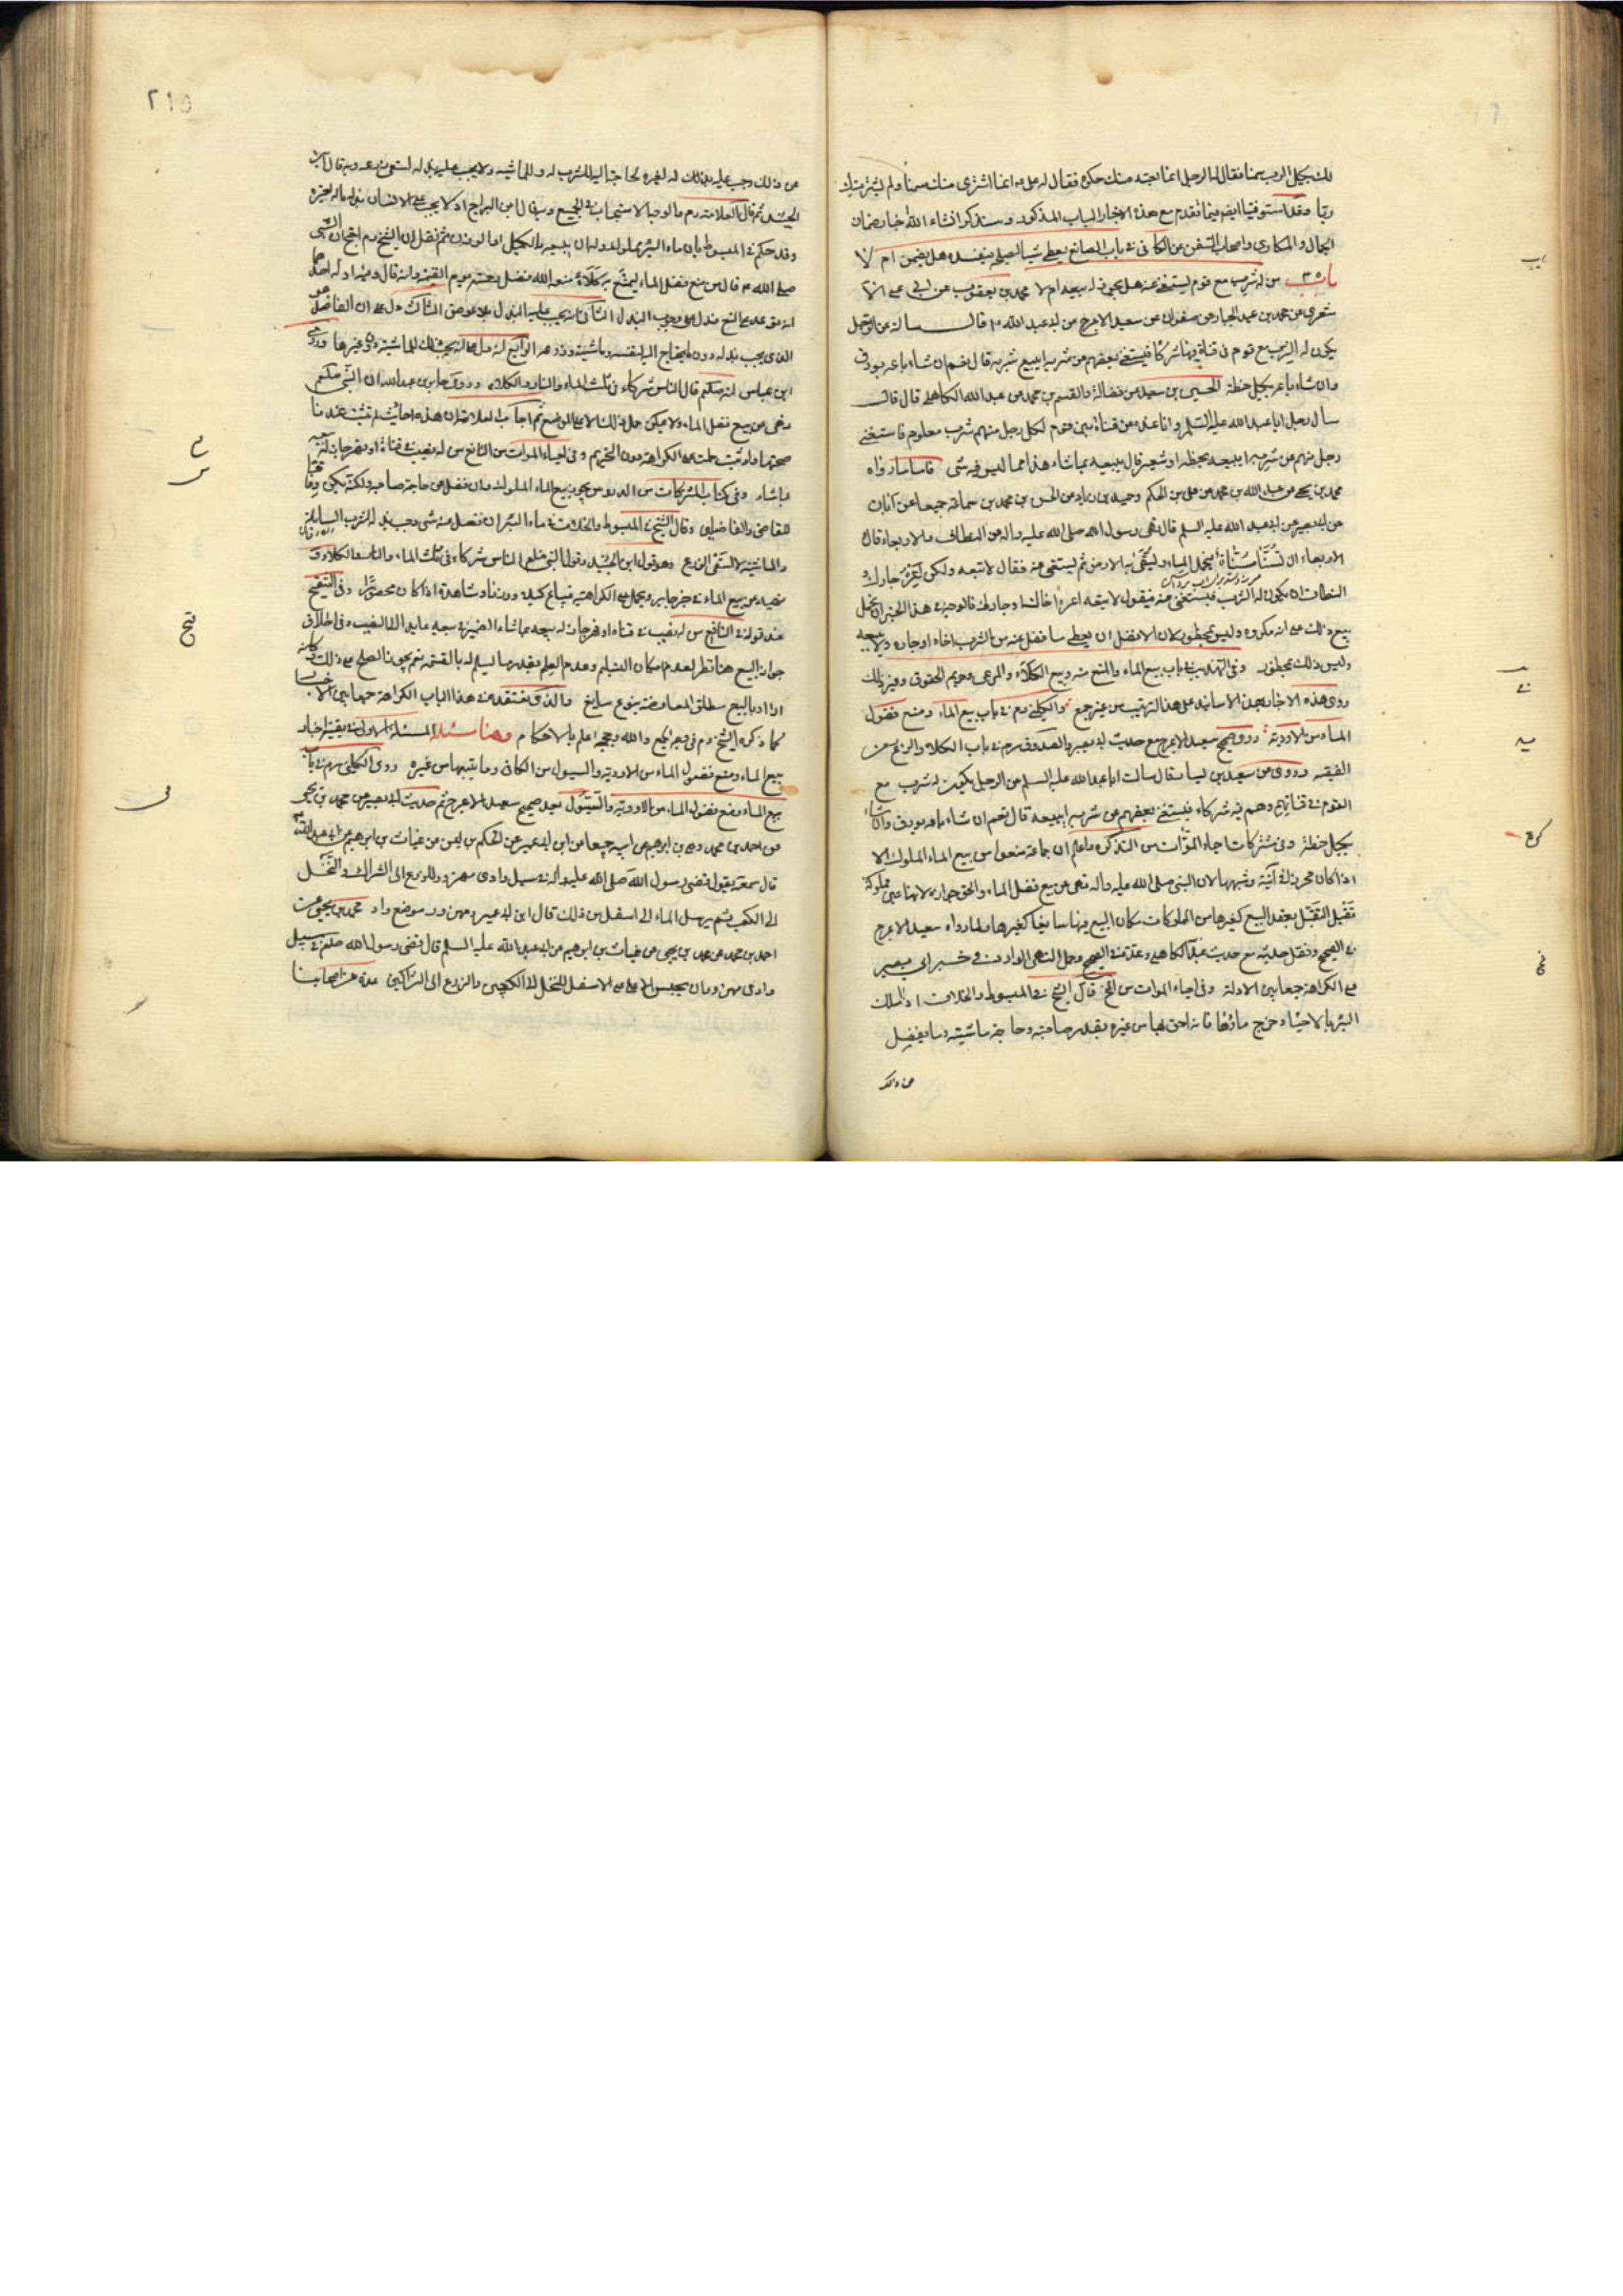 لك بكيل الرب سمنا فقال له الرجل انما بعته منك حكرة فقال له علي ع انما اشترى منك سمنا ولم يشتر منك
ربا وقد استوفينا ايضم فيما تقدم مع هذه الاخبار الباب المذكور وسنذكر انشاء الله خبار ضمان
الجمال والمكارى واصحاب السفن من الكافى فى باب الصانع يعطى شيئا ليصلحه فيفسده هل يضمن ام لا
باب ٣٥ من له شرب مع قوم يستغنى عنه هل يجوز له بيعه ام لا محمد بن يعقوب عن ابى على الا
شعرى عن محمد بن عبد الجبار عن صفوان عن سعيد الاعرج عن ابى عبد الله ع قال سالته عن الرجل
يكون له الشرب مع قوم فى قناة فيها شركا فيستغنى بعضهم عن شربه ايبيع شربه قال نعم ان شاء باعه بورق
وان شاء باعه بكيل حنطة الحسين بن سعيد عن فضالة والقسم بن محمد عن عبد الله الكاهلى قال
سأل رجل ابا عبد الله عليه السلم وانا عنده عن قناة بين قوم لكل رجل منهم شرب معلوم فاستغنى
رجل منهم عن شربه ايبيعه بحنطة او شعير قال يبيعه بما شاء هذا مما ليس فيه شى فاما ما رواه
محمد بن يحيى عن عبد الله بن محمد عن على بن الحكم وحميد بن زياد عن الحسن بن محمد بن سماعة جميعا عن ابان
عن ابى بصير عن ابى عبد الله عليه السلم قال نهى رسول الله صلى الله عليه واله عن النطاف والاربعاء قال
الاربعاء ان تسنا مسناة فيحمل الماء وليسقى به الارض ثم يستغنى عنه فقال لا تبعه ولكن اعره جارك و
النطاف ان يكون له الشرب فيستغنى عنه فيقول لا تبعه اعره اخاك او جارك فالوجه فى هذا الخبر ان نحمل
بيع ذلك على انه مكروه وليس بمحظور لان الافضل ان يعطى ما فضل عنه من الشرب اخاه او جاره ولا يبيعه
وليس ذلك بمحظور وفى التهذيب فى باب بيع الماء والمنع منه وبيع الكلاء والمرعى وحريم الحقوق وغير ذلك
روى هذه الاخبار بعين الاسانيد على هذا الترتيب من غير جمع والكلينى رم فى باب بيع الماء ومنع فضول
الماء من الاودية وروى صحيح سعيد الاعرج مع حديث ابى بصير والصدوق رم فى باب الكلاء والزرع من
الفقيه وروى عن سعيد بن يسار قال سالت ابا عبد الله عليه السلم عن الرجل يكون له شرب مع
القوم فى قناتهم وهم فيه شركاء فيستغنى بعضهم عن شربه ايبيعه قال نعم ان شاء باعه بورق وان شاء
بكيل حنطة وفى مشتركات احياء الموات من التذكرة واعلم ان جماعة منعوا من بيع الماء المملوك الا
اذا كان محرزا فى آنية وشبهها لان النبى صلى الله عليه واله نهى عن بيع فضل الماء والحق جوازه لانها عين مملوكة
تقبل النقل بعقد البيع كغيرها من المملوكات فكان البيع فيها سايغا كغيرها ولما رواه سعيد الاعرج
فى الصحيح ونقل حديثه مع حديث عبد الله الكاهلى وعده فى الصحيح وحمل النهى الوارد فى خبر ابى بصير
على الكراهة جمعا بين الادلة وفى احياء الموات من قال الشيخ فى المبسوط والخلاف اذا ملك
البئر بالاحياء وخرج ماؤها فانه احق بها من غيره بقدر حاجته وحاجة ماشيته وما يفضل
عن ذلك
٢١٥
عن ذلك وجب عليه بذله لغيره لحاجته اليه للشرب له و للماشيه ولا يجب عليه بذله لسقى زرعه وبه قال ابن
الجنيد ثم قال العلامة رم والوجه الاستحباب فى الجميع وبه قال ابن البراج اذ لا يجب على الانسان بذل ماله لغيره
وقد حكم فى المبسوط بان ماء البئر مملوك وله ان يبيعه بالكيل او الوزن ثم نقل ان الشيخ رم احتج بان النبى
صلى الله ع قال من منع فضل الماء ليمنع به كلاء منعه الله فضل رحمته يوم القيمة وانه قال وفيه ادلة احدها
انه توعد على المنع فدل على وجوب البذل الثانى انه يجب عليه البذل بلا عوض الثالث دل على ان الفاضل هو
الذى يجب بذله دون ما يحتاج اليه لنفسه وماشيته وزرعه الرابع انه دل على انه يجب ذلك للماشية دون غيرها وروى
ابن عباس انه صلعم قال الناس شركاء فى ثلث الماء والنار والكلاء وروى جابر بن عبد الله ان النبى صلعم
نهى عن بيع فضل الماء ولا يمكن حمل ذلك الا على الموضع ثم اجاب العلامة ان هذه احاديث لم تثبت عندنا
صحتها ولو ثبت حملت على الكراهة دون التحريم وفى احياء الموات من النافع من له نصيب فى قناة او نهر جاز له بيعه
بما شاء وفى كتاب المشتركات من الدروس يجوز بيع الماء المملوك وان فضل عن حاجة صاحبه ولكنه يكره وفاقا
للقاضى والفاضلين وقال الشيخ فى المبسوط والخلاف فى ماء البئر ان فضل منه شى وجب بذله لشرب السابلة
والماشية لا لسقى الزرع وهو قول ابن الجنيد وقول النبى صلعم الناس شركاء فى ثلث الماء والنار والكلاء و
نهيه عن بيع الماء فى خبر جابر ويحمل على الكراهية فيباع كيلا ووزنا ومشاهدة اذا كان محصورا وفى التنقيح
عند قوله فى النافع من له نصيب فى قناة او نهر جاز له بيعه بما شاء الضمير فى بيعه عايد الى النصيب وفى اطلاق
جواز البيع هنا نظر لعدم امكان التسليم وعدم العلم بقدر ما ليسلم له بالقسمة نعم يجوز الصلح على ذلك وكانه
اراد بالبيع مطلق المعاوضة بنوع سايغ والذى نعتقده فى هذا الباب الكراهة جمعا بين الاخبار
كما ذكره الشيخ رم فى وجه الجمع والله وحججه اعلم بالاحكام وهنا مسئلة المسئلة الاولى فى بقية اخبار
بيع الماء ومنع فضول الماء من الاودية والسيول من الكافى وما يتبعها من غيره روى الكلينى رم فى باب
بيع الماء ومنع فضول الماء من الاودية والسيول بعد صحيح سعيد الاعرج ثم حديث ابى بصير عن محمد بن يحيى
عن احمد بن محمد وعلى بن ابراهيم عن ابيه جميعا عن ابن ابى عمير عن الحكم بن ايمن عن غياث بن ابراهيم عن ابى عبد الله ع
قال سمعته يقول قضى رسول الله صلى الله عليه واله فى سيل وادى مهزور للزرع الى الشراك والنخل
الى الكعب ثم يرسل الماء الى اسفل من ذلك قال ابن ابى عمير ومهزور موضع واد محمد بن يحيى عن
احمد بن محمد عن محمد بن يحيى عن غياث بن ابراهيم عن ابى عبد الله عليه السلم قال قضى رسول الله صلعم فى سيل
وادى مهزور ان يحبس الاعلى على الاسفل للنخل الى الكعبين والزرع الى الشراكين عدة من اصحابنا